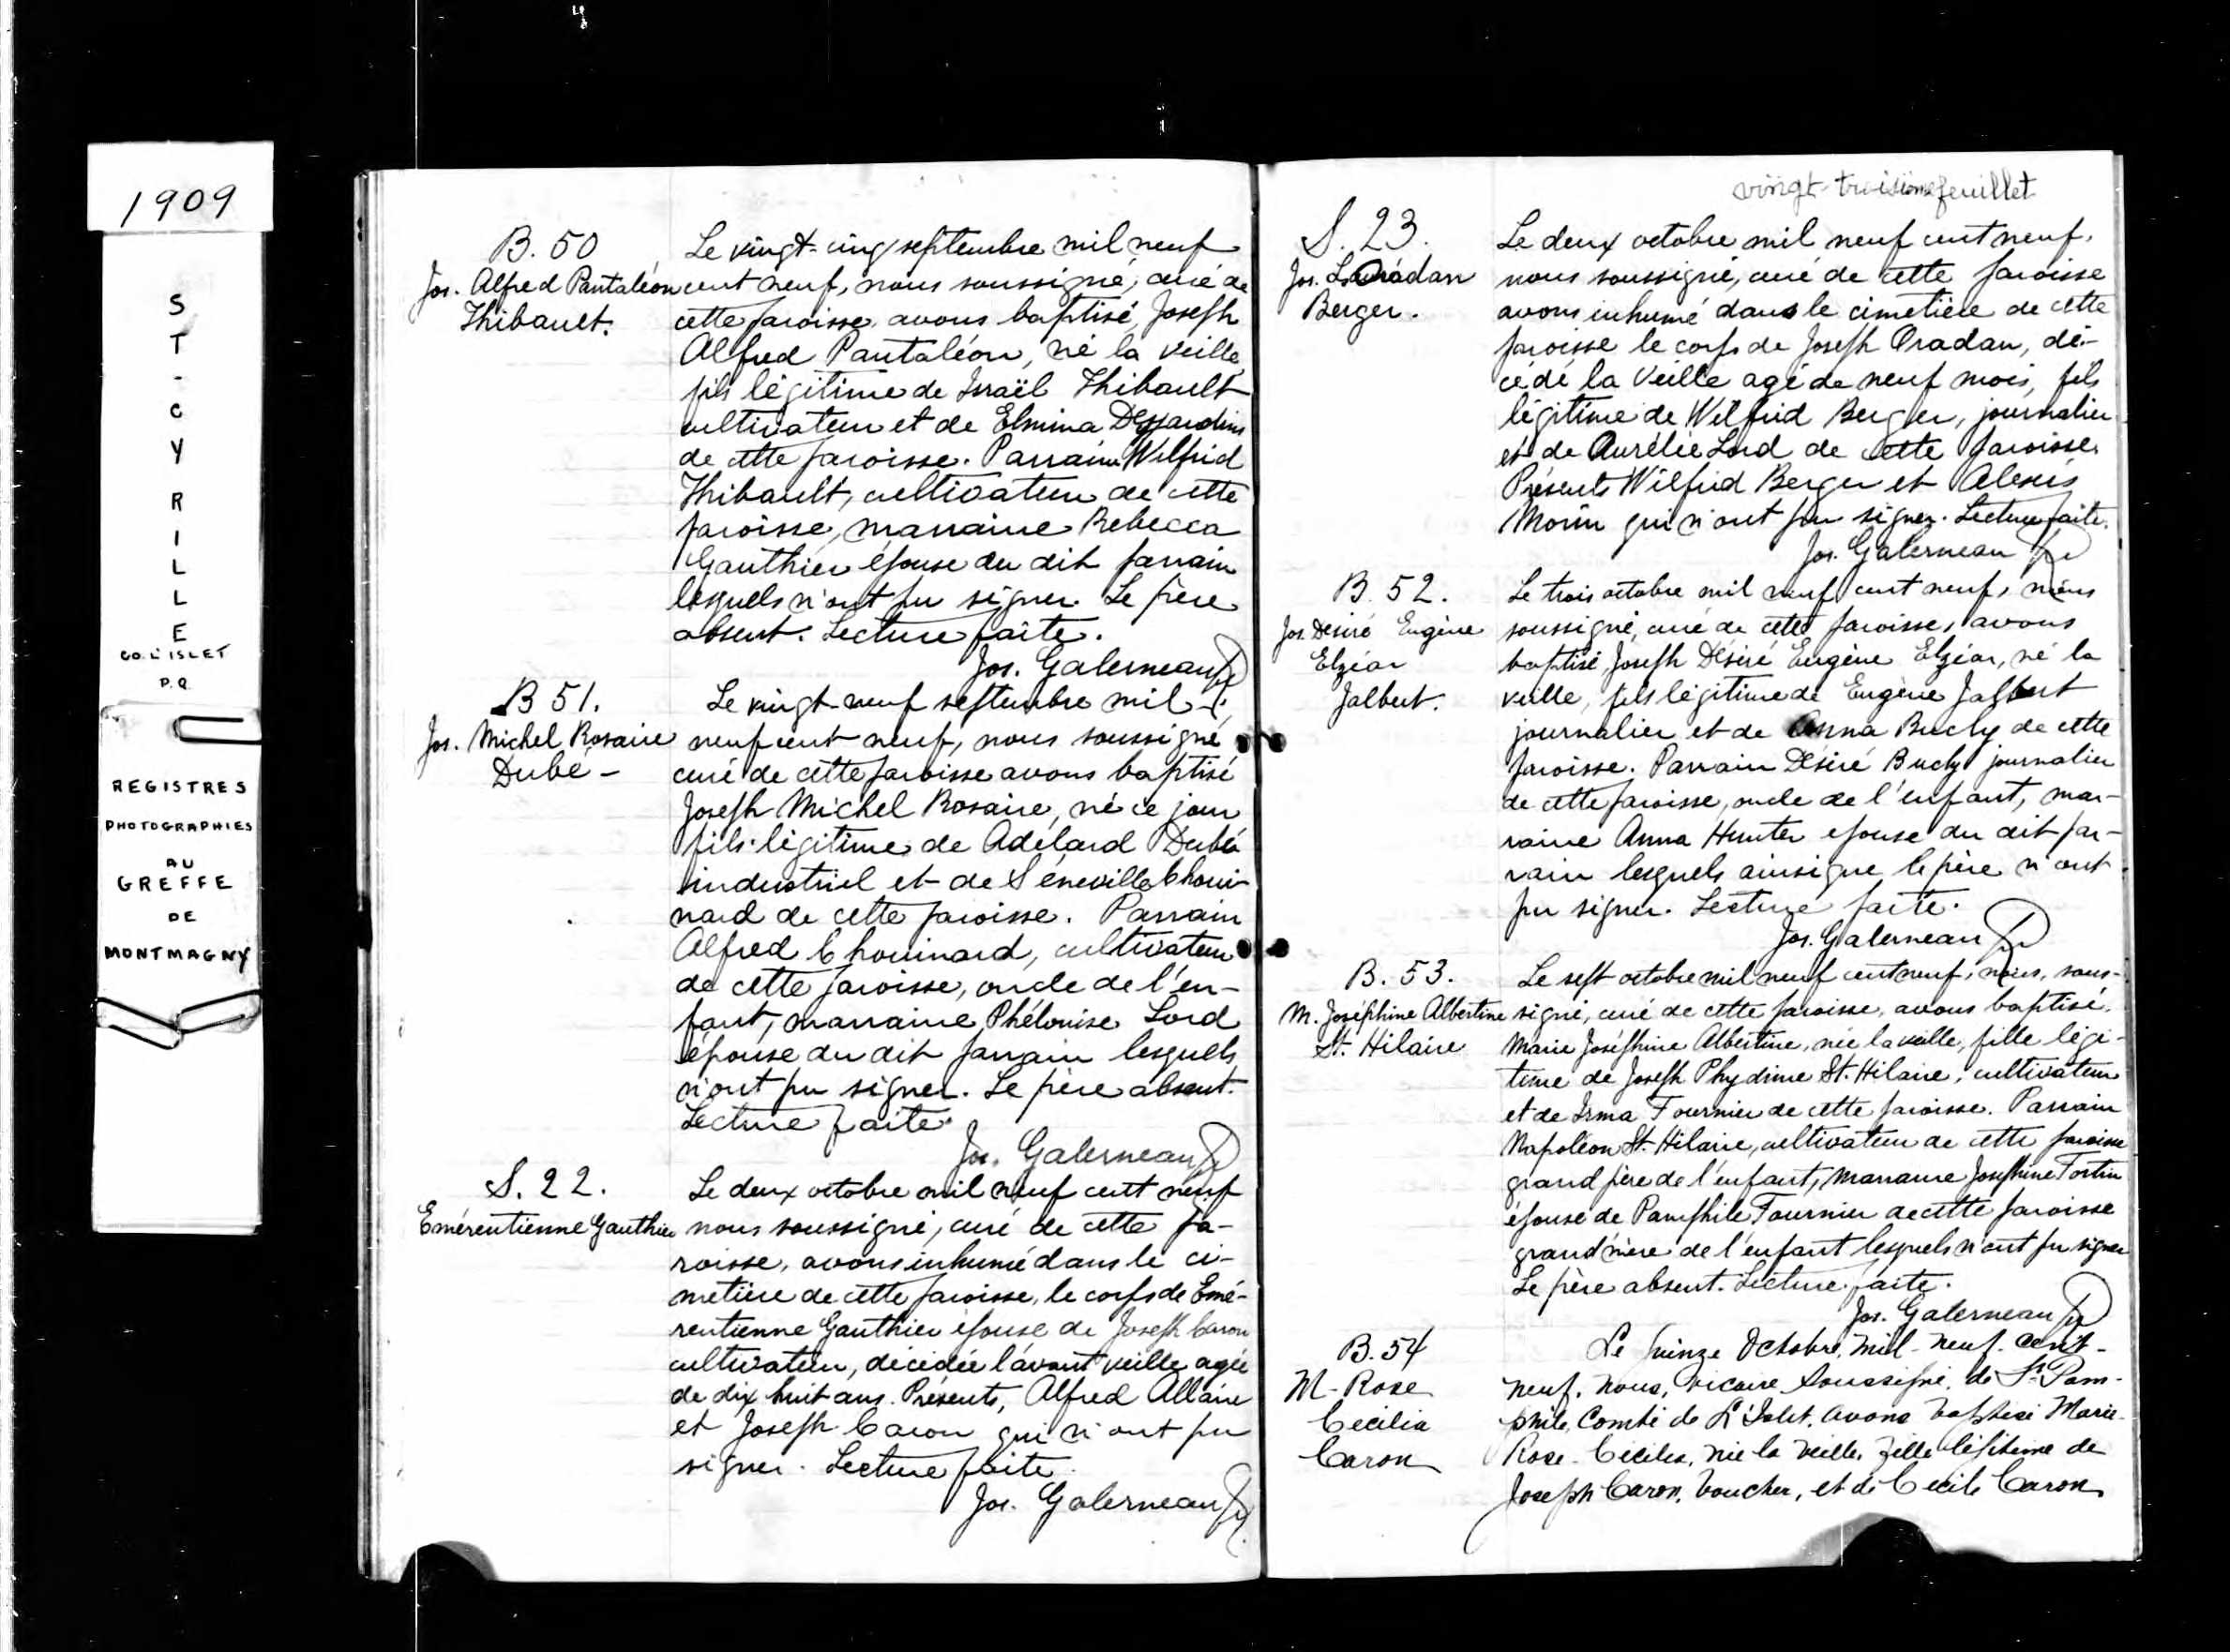 1909
ST-CYRILLE
CO. L'ISLET
P.Q.
REGISTRES
PHOTOGRAPHIES
AU
GREFFE
DE
MONTMAGNY
B. 50
Jos. Alfred Pantaléon
Thibault.
Le vingt-cinq septembre mil neuf
cent neuf, nous soussigné, curé de
cette paroisse, avons baptisé Joseph
Alfred Pantaléon, né la veille
fils légitime de Israël Thibault
cultivateur et de Elmina Desjardins
de cette paroisse. Parrain Wilfrid
Thibault, cultivateur de cette
paroisse, marraine Rebecca
Gauthier épouse du dit parrain
lesquels n'ont pu signer. Le père
absent. Lecture faite.
Jos. Galerneau Ptre
B 51.
Jos. Michel Rosaire
Dubé -
Le vingt-neuf septembre mil
neuf cent neuf, nous soussigné
curé de cette paroisse avons baptisé
Joseph Michel Rosaire, né ce jour
fils légitime de Adélard Dubé
industriel et de Séneville Choui-
nard de cette paroisse. Parrain
Alfred Chouinard, cultivateur
de cette paroisse, oncle de l'en-
fant, marraine Phélonise Lord
épouse du dit parrain lesquels
n'ont pu signer. Le père absent.
Lecture faite.
Jos. Galerneau Ptre
S. 22.
Emérentienne Gauthier
Le deux octobre mil neuf cent neuf
nous soussigné, curé de cette pa-
roisse, avons inhumé dans le ci-
metière de cette paroisse, le corps de Emé-
rentienne Gauthier épouse de Joseph Caron
cultivateur, décédée l'avant veille agée
de dix huit ans. Présents, Alfred Allaire
et Joseph Caron qui n'ont pu
signer. Lecture faite.
Jos. Galerneau Ptre
vingt-troisième feuillet
S. 23.
Jos. Oradan
Berger.
Le deux octobre mil neuf cent neuf,
nous soussigné, curé de cette paroisse
avons inhumé dans le cimetière de cette
paroisse le corps de Joseph Oradan, dé-
cédé la veille agé de neuf mois, fils
légitime de Wilfrid Berger, journalier
et de Aurélie Lord de cette paroisse.
Présents Wilfrid Berger et Alexis
Morin qui n'ont pu signer. Lecture faite.
Jos. Galerneau Ptre
B. 52.
Jos. Désiré Eugène
Elzéar
Jalbert.
Le trois octobre mil neuf cent neuf, nous
soussigné, curé de cette paroisse, avons
baptisé Joseph Désiré Eugène Elzéar, né la
veille, fils légitime de Eugène Jalbert
journalier et de Anna Bucly de cette
paroisse. Parrain Désiré Bucly journalier
de cette paroisse, oncle de l'enfant, mar-
raine Anna Hunter épouse du dit par-
rain lesquels ainsi que le père n'ont
pu signer. Lecture faite.
Jos. Galerneau Ptre
B. 53.
M. Joséphine Albertine
St. Hilaire
Le sept octobre mil neuf cent neuf, nous, sous-
signé, curé de cette paroisse, avons baptisé
Marie Joséphine Albertine, née la veille, fille légi-
time de Joseph Phydime St. Hilaire, cultivateur
et de Irma Fournier de cette paroisse. Parrain
Napoléon St. Hilaire, cultivateur de cette paroisse
grand père de l'enfant, marraine Joséphine Fortin
épouse de Pamphile Fournier de cette paroisse
grand'mère de l'enfant lesquels n'ont pu signer
Le père absent. Lecture faite.
Jos. Galerneau Ptre
B. 54
M-Rose
Cécilia
Caron
Le quinze Octobre, mil-neuf-cent-
neuf, nous, vicaire soussigné, de St-Pam-
phile, Comté de L'Islet, avons baptisé Marie
Rose-Cécilia, née la veille, fille légitime de
Joseph Caron, boucher, et de Cécile Caron